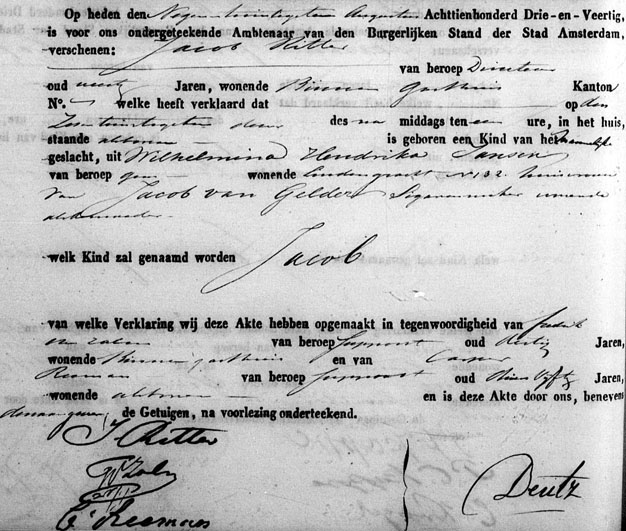 Op heden den Negen en twintigsten Augustus Achttienhonderd Drie-en-Veertig,
is voor ons ondergeteekende Ambtenaar van den Burgerlijken Stand der Stad Amsterdam,
verschenen: Jacob Ritter
van beroep Directeur
oud Jaren, wonende Binnen Gasthuis Kanton
No. welke heeft verklaard dat op den
Zes en twintigsten dezer des na middags ten een ure, in het huis,
staande aldaar is geboren een Kind van het Mannelijke
geslacht, uit Wilhelmina Hendrika Jansen
van beroep geen wonende Lindengracht No 132 huisvrouw
van Jacob van Gelder Sigarenmaker wonende
welk Kind zal genaamd worden Jacob
van welke Verklaring wij deze Akte hebben opgemaakt in tegenwoordigheid van
van beroep Suppoost oud Jaren,
wonende Binnen gasthuis en van Casper
Reeman van beroep Suppoost oud Jaren,
wonende en is deze Akte door ons, benevens
de Getuigen, na voorlezing onderteekend.
J Ritter
C Reemans
Deutz